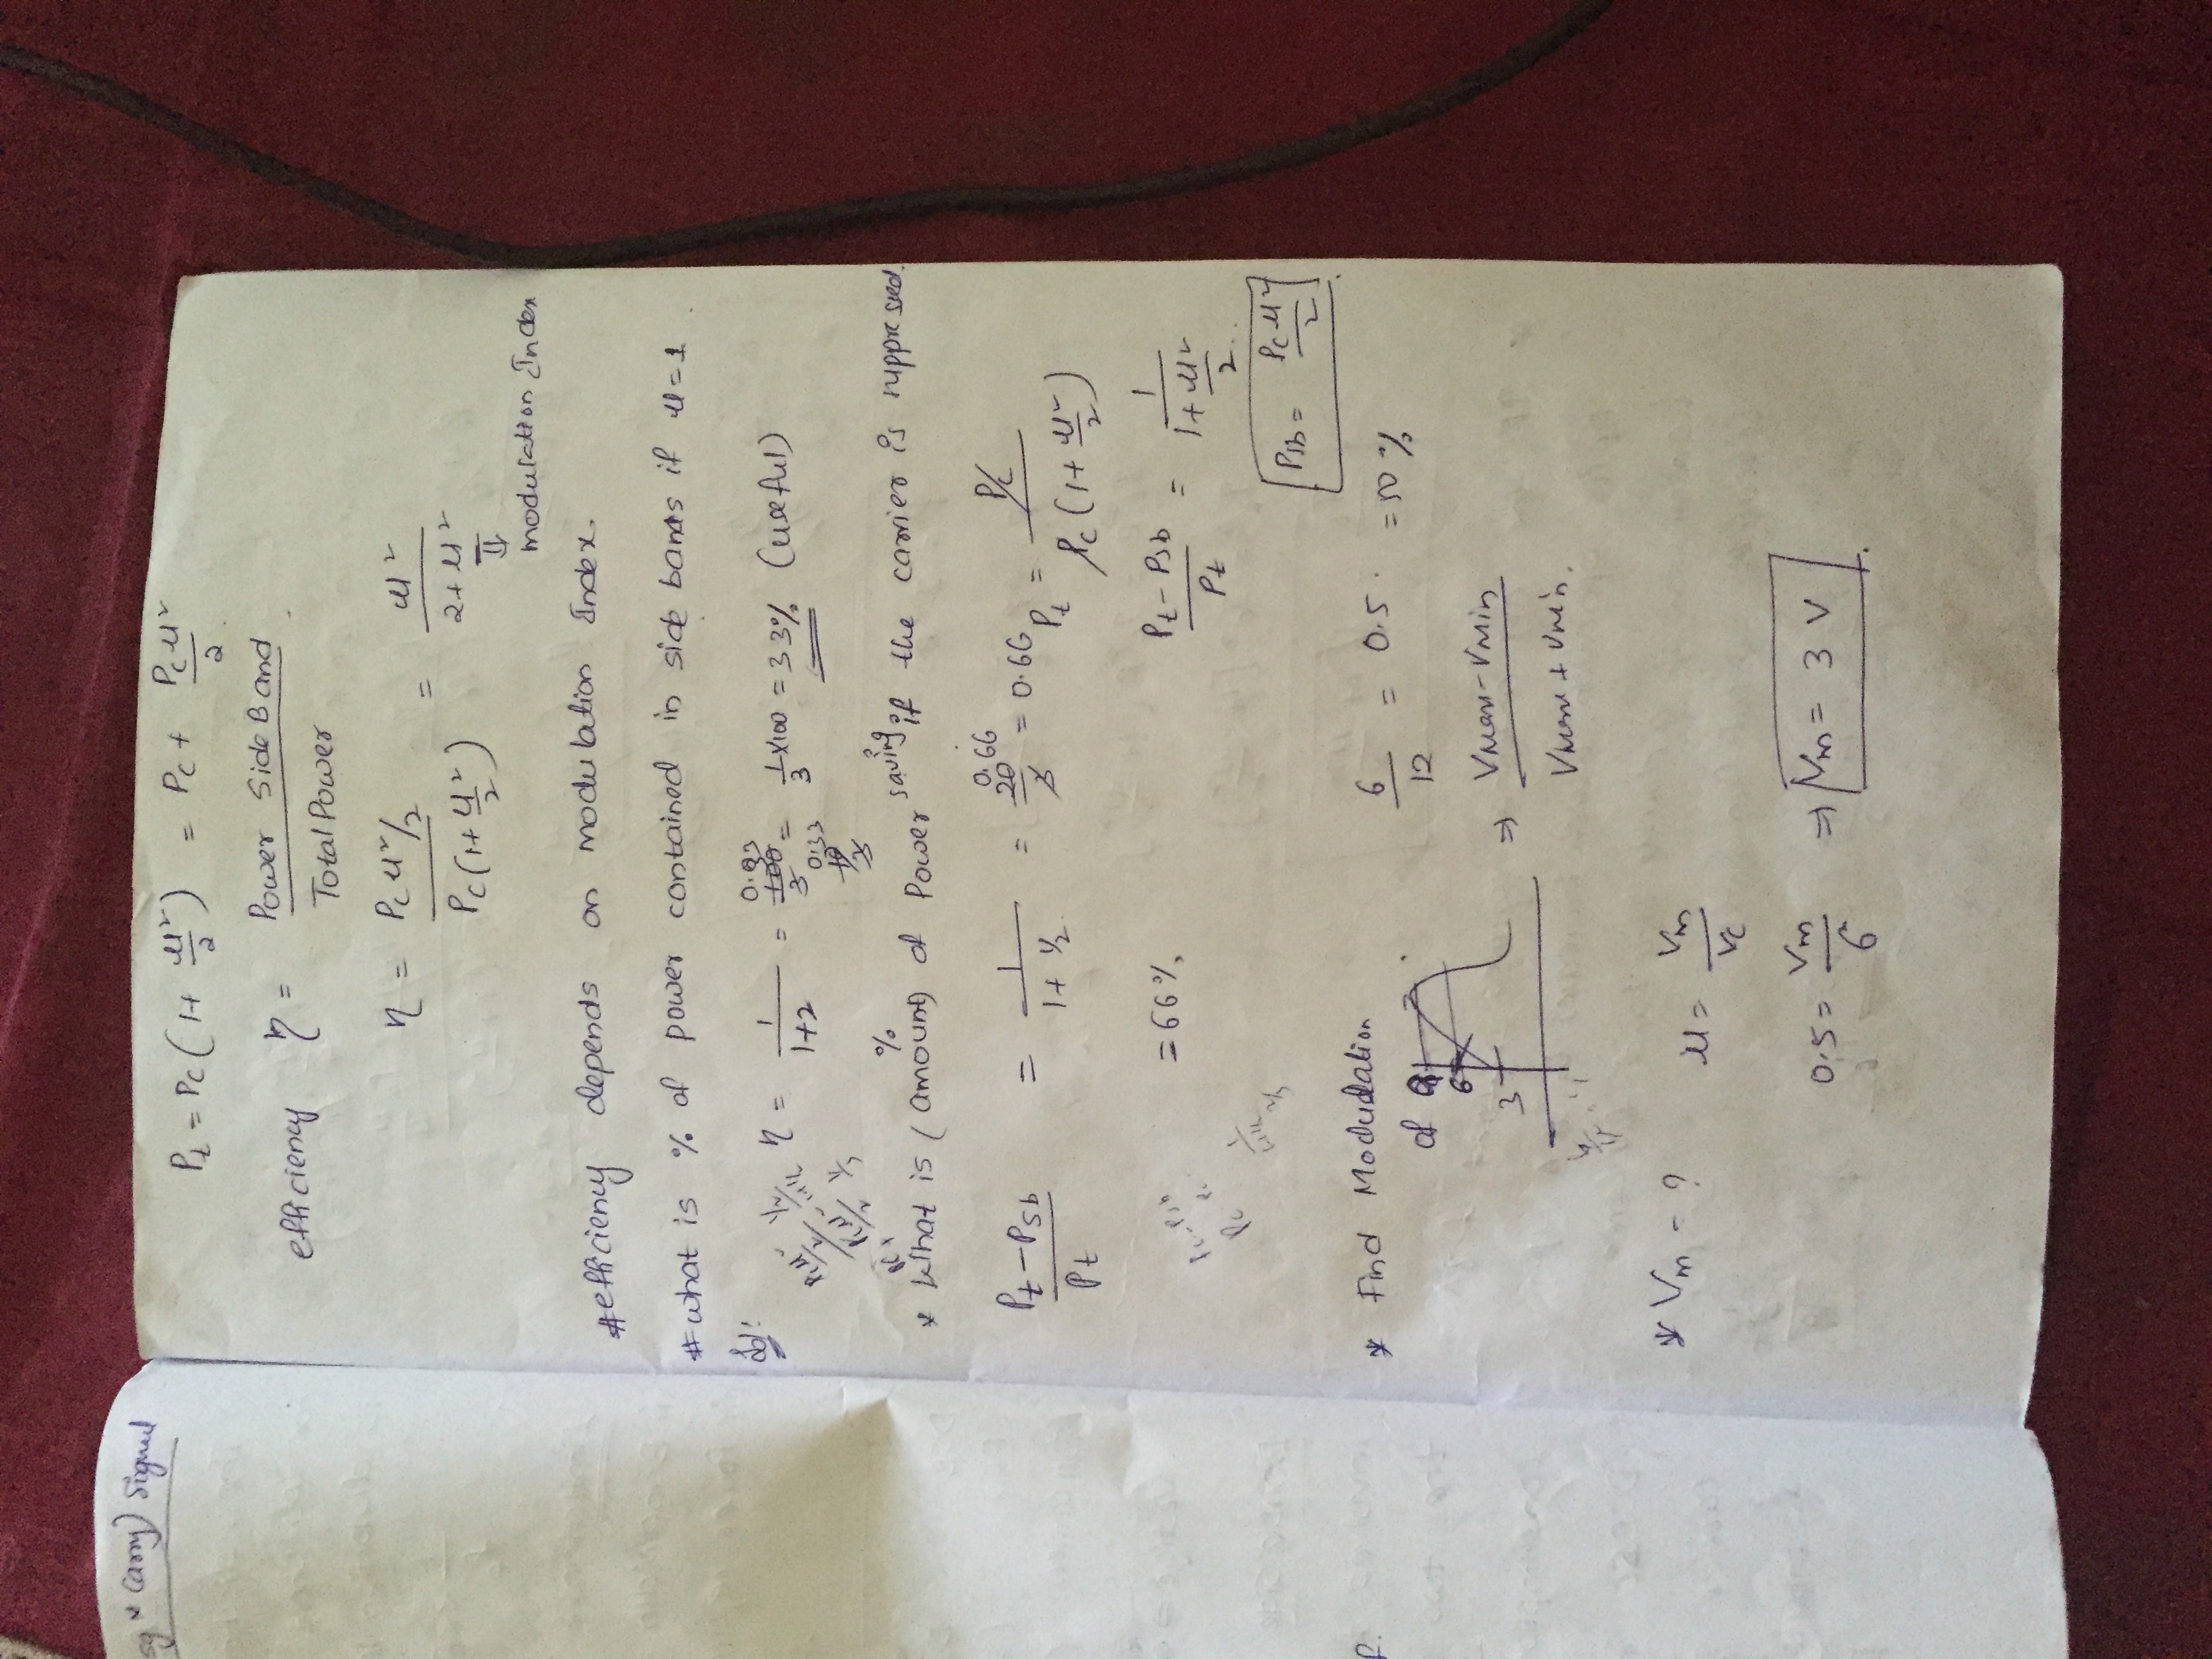 Carry) Signal
Pt = Pc (1 + μ²/2) = Pc + Pc μ²/2
efficiency η = Power Side Band / Total Power
η = Pc μ²/2 / Pc (1 + μ²/2) = μ² / 2 + μ²
⇓
modulation Index
# efficiency depends on modulation Index.
# what is % of power contained in side bands if μ = 1
Sol:
η = 1 / 1+2 = 1/3 x 100 = 33% (useful)
* What is (amount) % of Power saving if the carrier is suppressed.
Pt - Psb / Pt = 1 / 1 + 1/2 = 0.66 = 0.66 Pt = Pc / Pc (1 + μ²/2)
= 66%.
Pt - Psb / Pt = 1 / 1 + μ²/2
Psb = Pc μ² / 2
* Find Modulation
of
9
6
3
6 / 12 = 0.5 = 50%
⇒ Vmax - Vmin / Vmax + Vmin.
* Vm - ?
μ = Vm / Vc
0.5 = Vm / 6 ⇒ Vm = 3 V